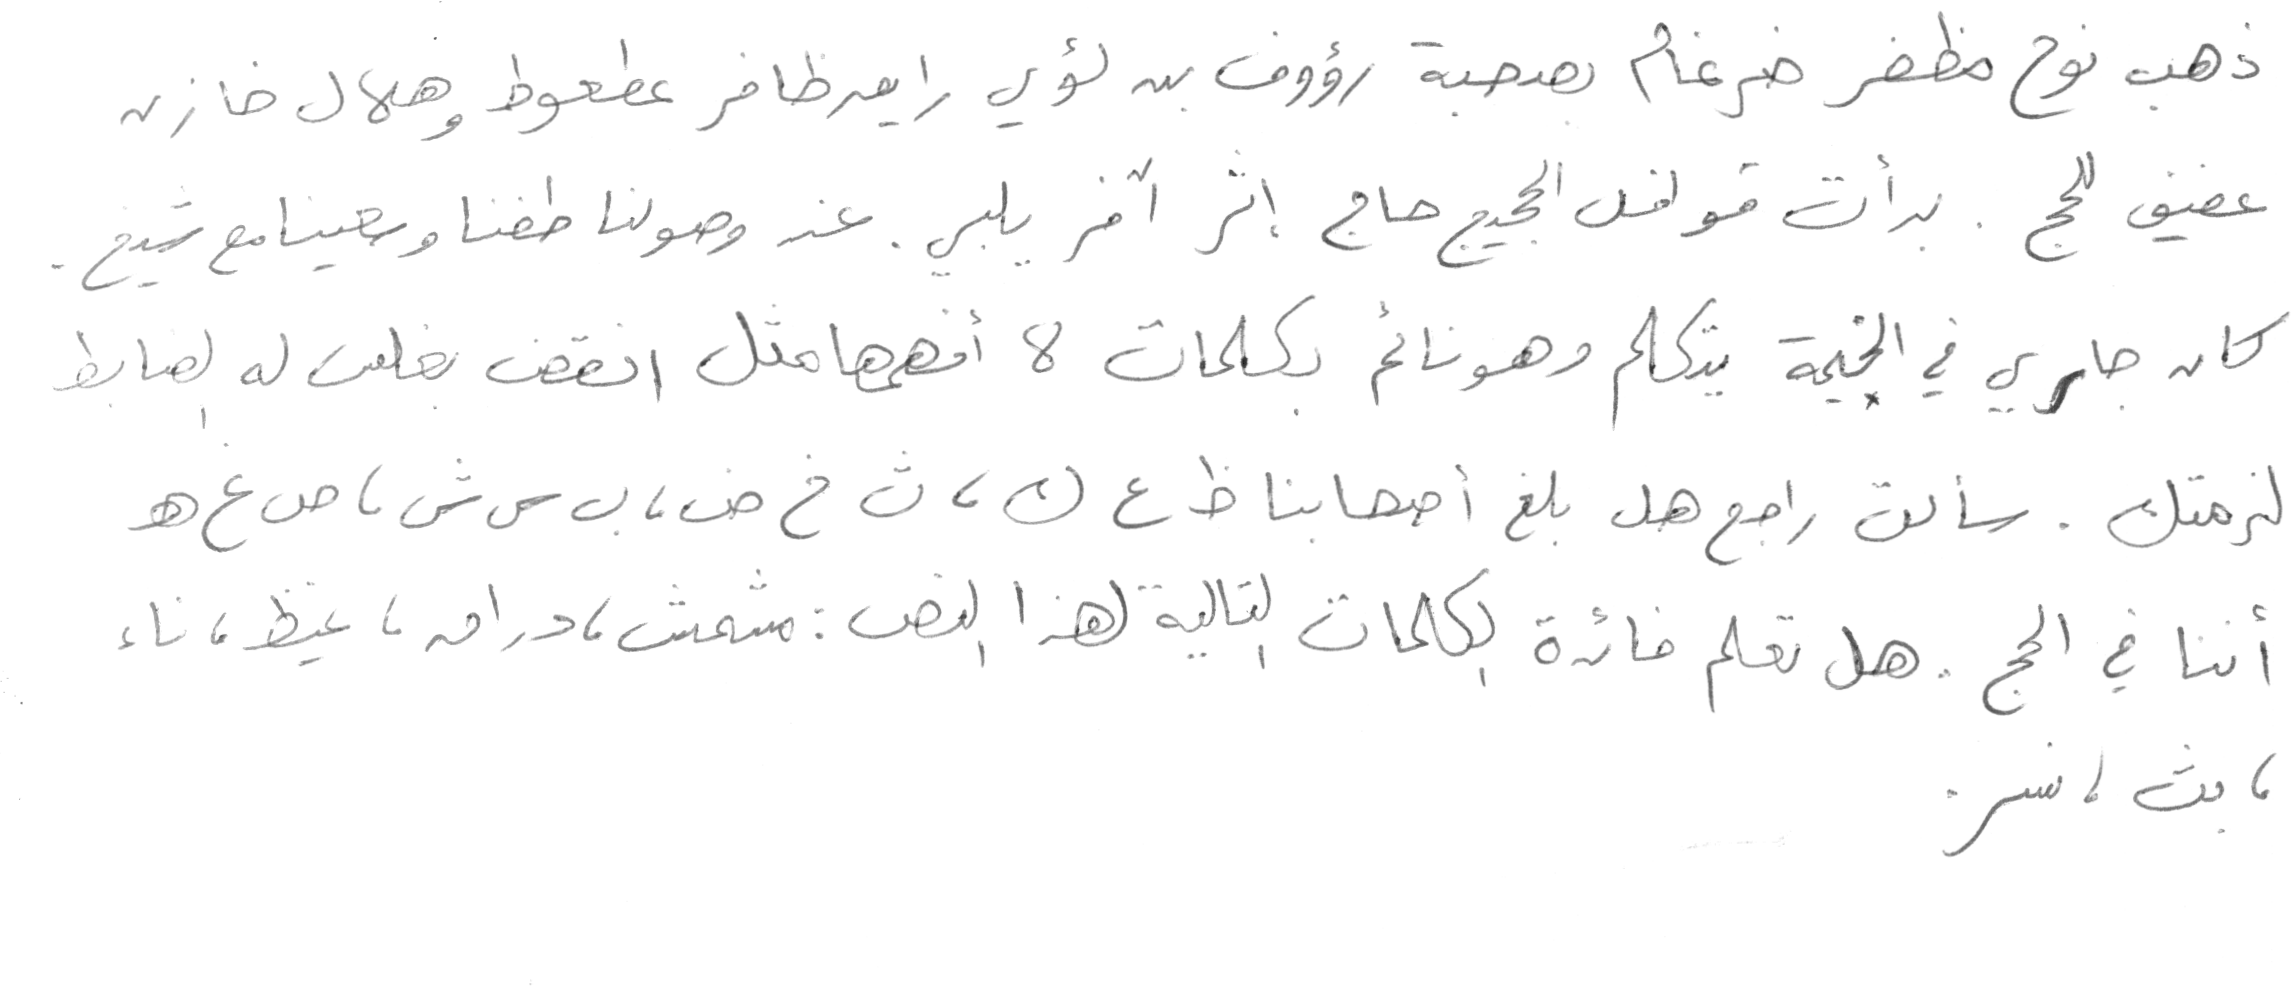 ذهب نوح مظفر ضرغام بصحبة رؤوف بن لؤي رايق ظافر عطعوط وهلال خازن
عفيق للحج . بدأت قوافل الحجيج حاج إثر آخر يلبي . عند وصولنا طفنا وسعينا مع شيخ .
كان جاري في الخيمة يتكلم وهو نائم بكلمات لا أفهمها مثل انقض بغلس له لضابط
لزمتك . سألت راجع هل بلغ أصحابنا ظ ع ك ، ث خ ض ، ب س ش ، ص غ ه
أننا في الحج . هل تعلم فائدة الكلمات التالية لهذا النص : مشمش ، دراق ، غيظ ، ناء
، بث ، نسر .